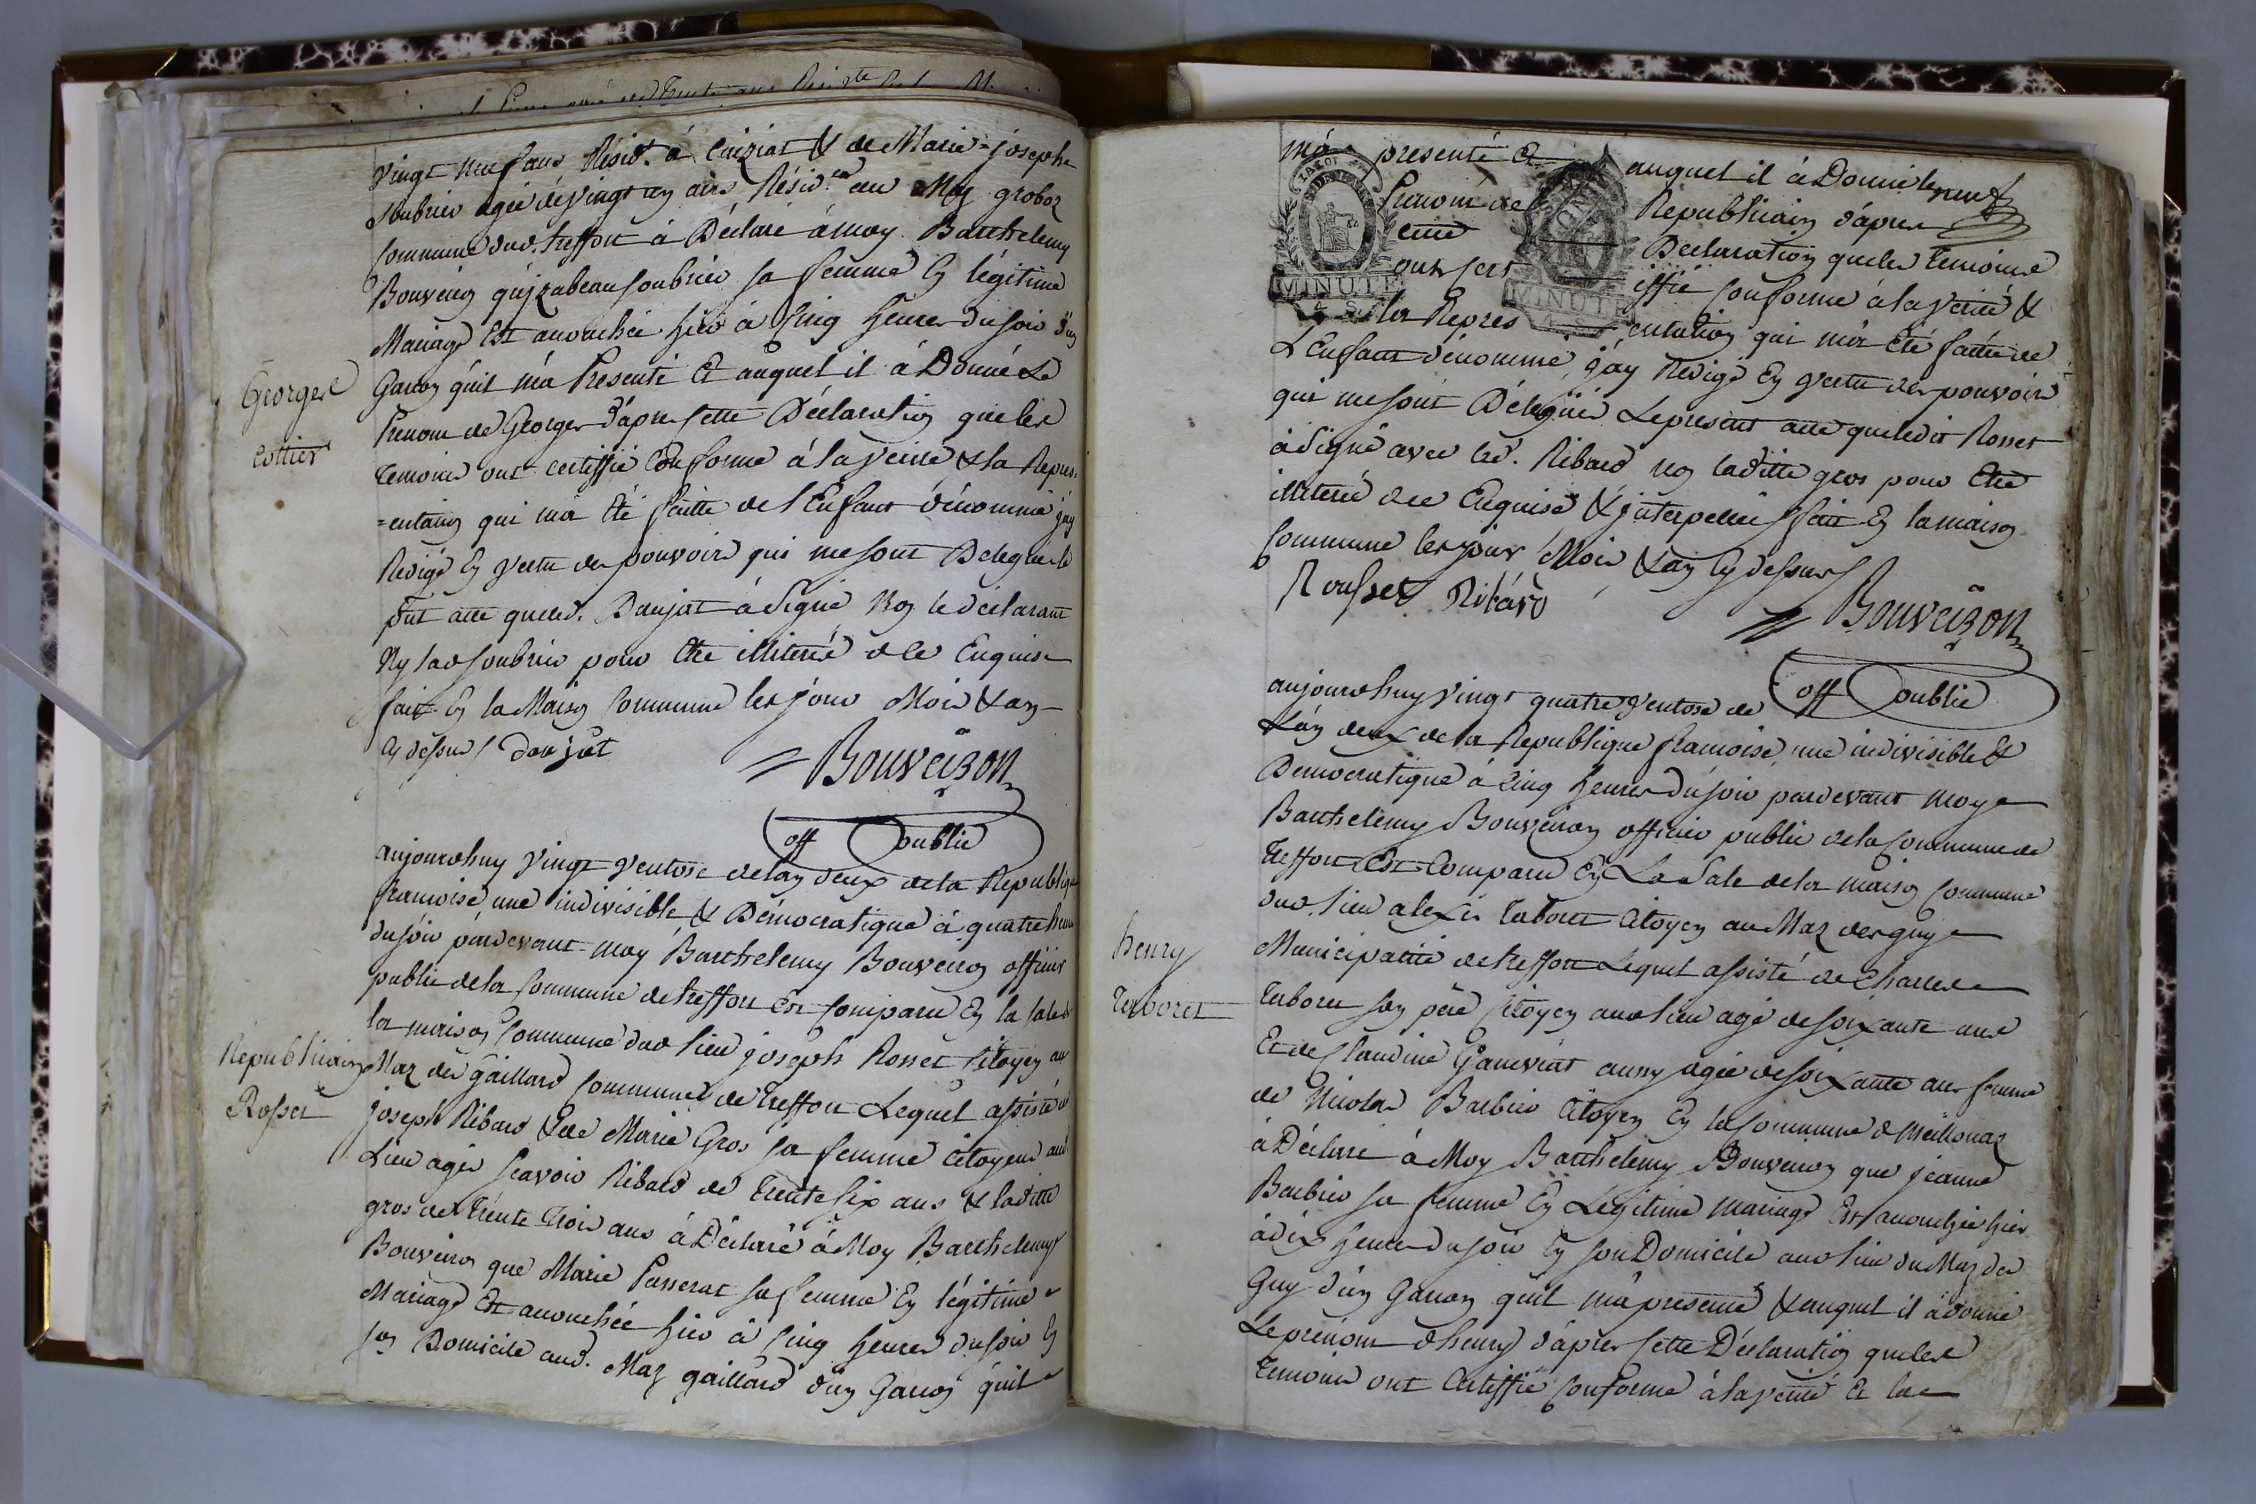 vingt neuf ans Résid.t á Cuiziat & de Marie=josephe
Soubrier agée de vingt cinq ans Résid.te au Maz groboz
Commune dud. treffort à Déclaré à moy Barthelemy
Bouveiron qu'izabeau Soubrier sa femme En légitime
Mariage Est accouchée hier à Cinq heures du soir d'un
Garcon qu'il m'a Présenté Et auquel il à Donné Le
Georges
Prenom de Georges d'apres Cette Déclaration que les
cottier
temoins ont certiffié Conforme á la verité & la Repres=
=entation qui m'a Eté faitte de l'Enfant dénommé j'ay
Redigé En vertu des pouvoirs qui me sont Delegués le
p'nt acte que led. Daujat à Signé Non le déclarant
Ny lad Soubrier pour Etre illiterés de ce Enquis
fait En la Maison Commune les jour Mois & an
Cy dessus / daujat
Bouveiron
off public
aujourdhuy vingt ventose de l'an deux de la Republique
francoise une indivisible & Démocratique à quatre heures
du soir pardevant moy Barthelemy Bouveiron officier
public de la Commune de treffort Est Comparu En la sale de
la maison Commune dud lieu joseph Rosset Citoyen au
Republicain
Maz des gaillard Commune de Treffort Lequel assisté de
Rosset
joseph Ribard & de Marie Gros sa femme Citoyens aud
Lieu agés scavoir Ribard de trente six ans & laditte
gros de trente trois ans à Déclaré à Moy Barthelemy
Bouveiron que Marie Passerat sa femme En légitime
Mariage Est accouchée hier à Cinq heures du soir En
son Domicile aud. Maz gaillard d'un Garcon qu'il
m'à presenté Et auquel il à Donné le
Prenom de Republicain d'apres
cette Declaration que les temoins
ont certiffié Conforme à la verité &
la Representation qui m'a Eté faitte de
L'Enfant dénommé, j'ay Redigé En vertu des pouvoirs
qui me sont Délegués Le present acte que ledit Rosset
à Signé avec led. Ribard Non laditte gros pour Etre
illiterée de ce Enquise & interpellée / fait En la maison
Commune les jour Mois & an Cy dessus /
Rousset Ribard
Bouveiron
off public
aujourdhuy vingt quatre ventose de
L'an deux de la Republique francoise une indivisible &
Democratique à Cinq heures du soir pardevant moy
Barthelemy Bouveiron officier public de la Commune de
treffort Est Comparu En La Sale de la maison Commune
dud. lieu alexis taboret Citoyen au Maz des guy
henry
Municipalité de treffort Lequel assisté de Charles
taboret
taboret son père Citoyen aud lieu agé de soixante ans
Et de Claudine Ganeviat aussy agée de soixante ans femme
de Nicolas Barbier Citoyen En la Commune de Meillonaz
à Déclaré à Moy Barthelemy Bouveiron que jeanne
Barbier sa femme En Légitime Mariage Est accouchée hier
à dix heures du soir En son Domicile aud lieu du Maz des
Guy d'un Garcon qu'il m'a présenté & auquel il à donné
Le prénom d'henry d'apres Cette Déclaration que les
temoins ont Certiffié Conforme à la verité Et la
MINUTE
MINUTE